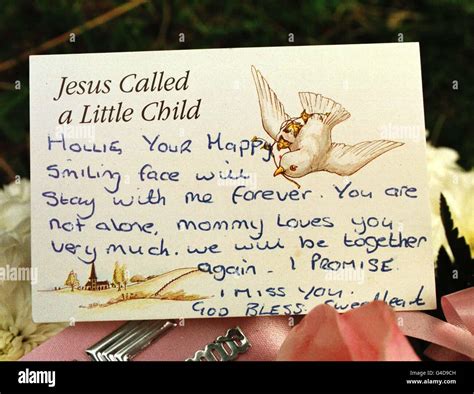 Jesus Called
a Little Child
HOLLIE, YOUR HAPPY
Smiling face will
Stay with me forever. You are
not alone, mommy Loves you
very much. we will be together
again. I PROMISE.
I MISS YOU.
GOD BLESS. SweetHeart
alamy
alamy
alamy
Image ID: G4D9CH
www.alamy.com